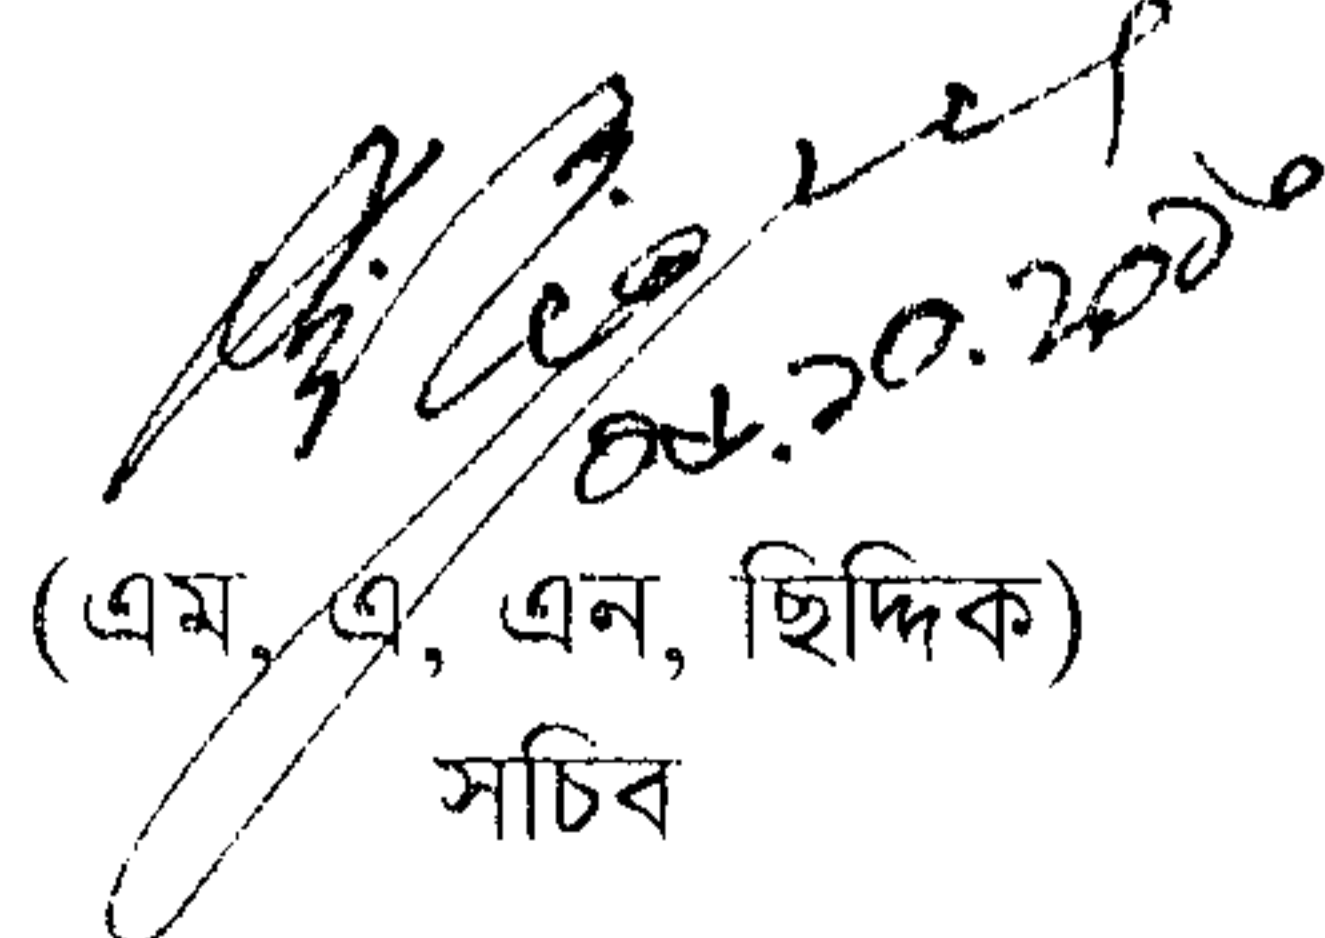 ০৮.১০.২০১৬
(এম, এ, এন, ছিদ্দিক)
সচিব